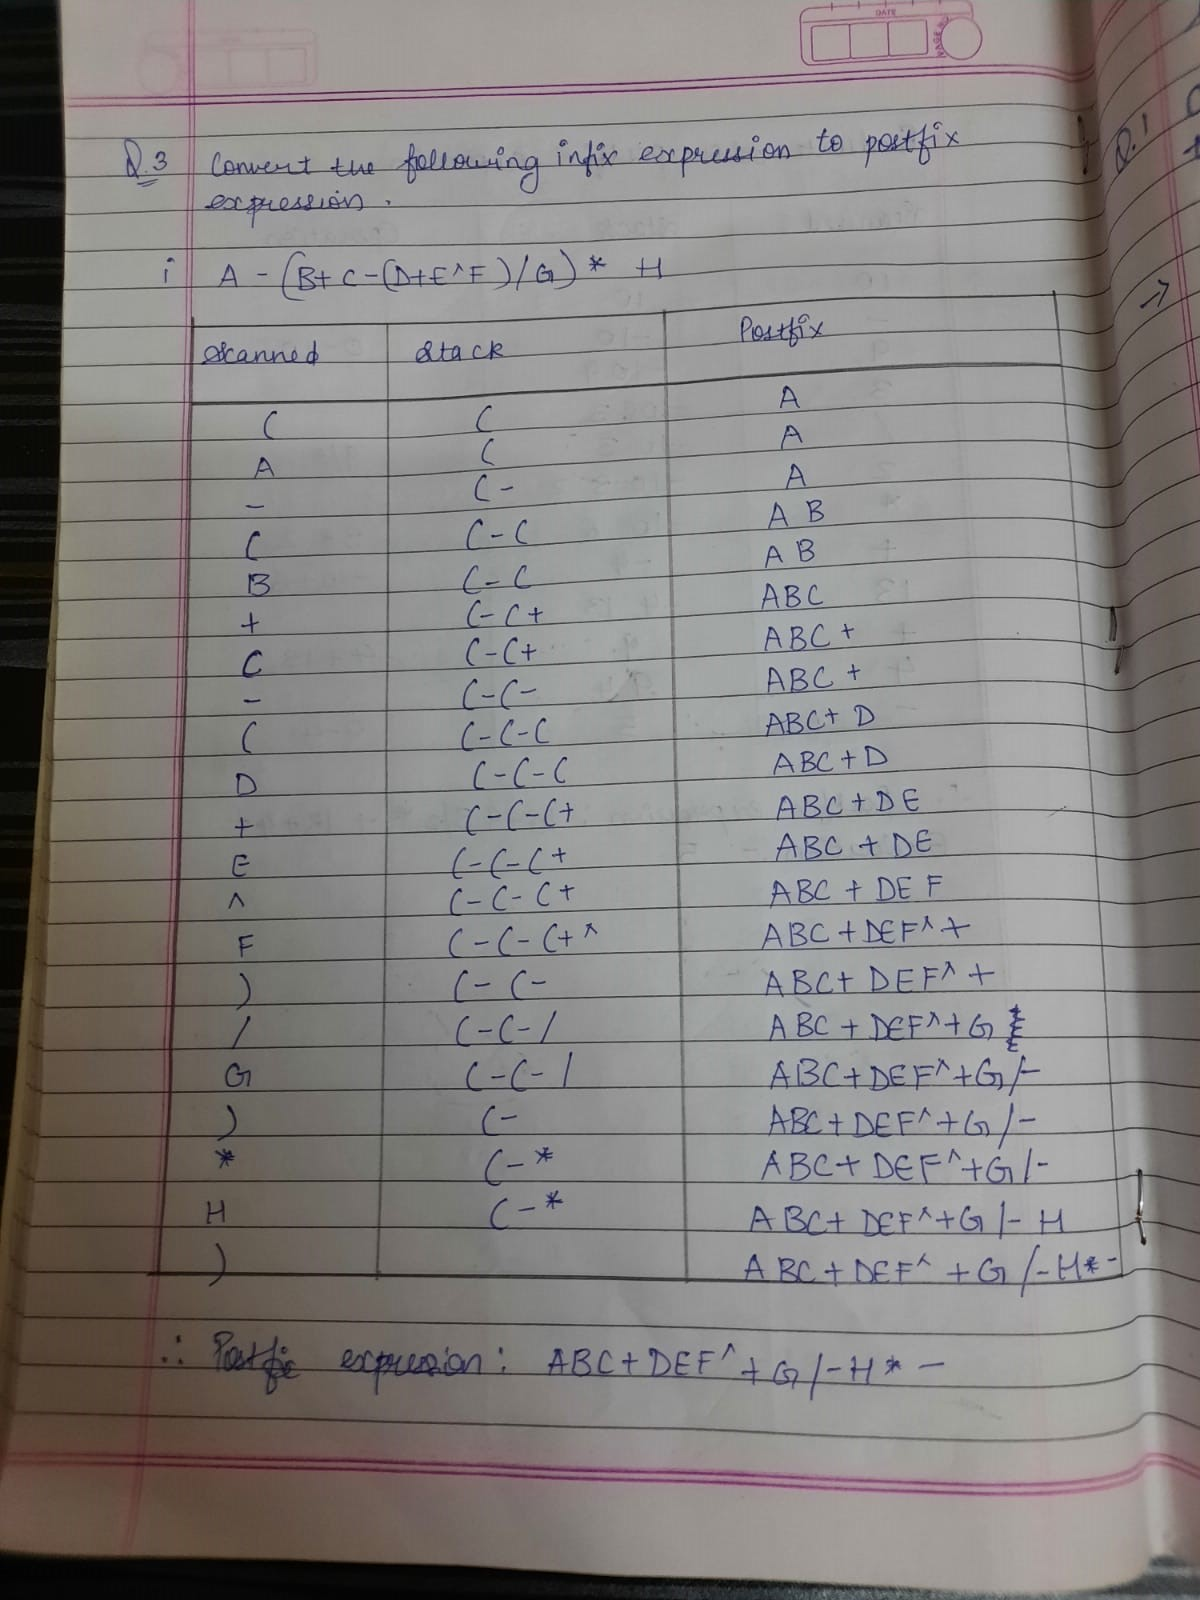 DATE
PAGE NO.
Q.3 Convert the following infix expression to postfix
expression.
i A - (B+C-(D+E^F)/G)* H
Scanned Stack Postfix
( ( A
A ( A
- (- A
( (-( AB
B (-( AB
+ (-(+ ABC
C (-(+ ABC+
- (-(- ABC+
( (-(-( ABC+D
D (-(-( ABC+D
+ (-(-(+ ABC+DE
E (-(-(+ ABC+DE
^ (-(-(+ ABC+DEF
F (-(-(+^ ABC+DEF^+
) (-(- ABC+DEF^+
/ (-(-/ ABC+DEF^+G
G (-(-/ ABC+DEF^+G/-
) (- ABC+DEF^+G/-
* (-* ABC+DEF^+G/-
H (-* ABC+DEF^+G/-H
) ABC+DEF^+G/-H*-
∴ Postfix expression: ABC+DEF^+G/-H*-
Q.1